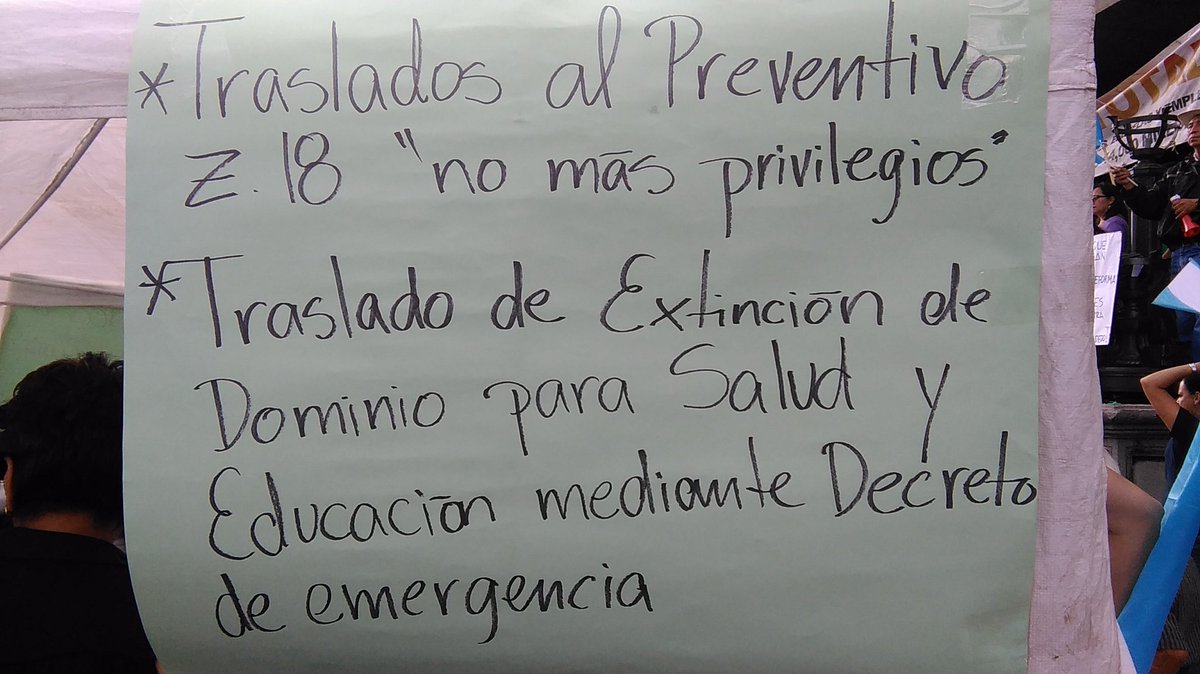 *Traslados al Preventivo
Z. 18 "no más privilegios"
*Traslado de Extinción de
Dominio para Salud y
Educación mediante Decreto
de emergencia